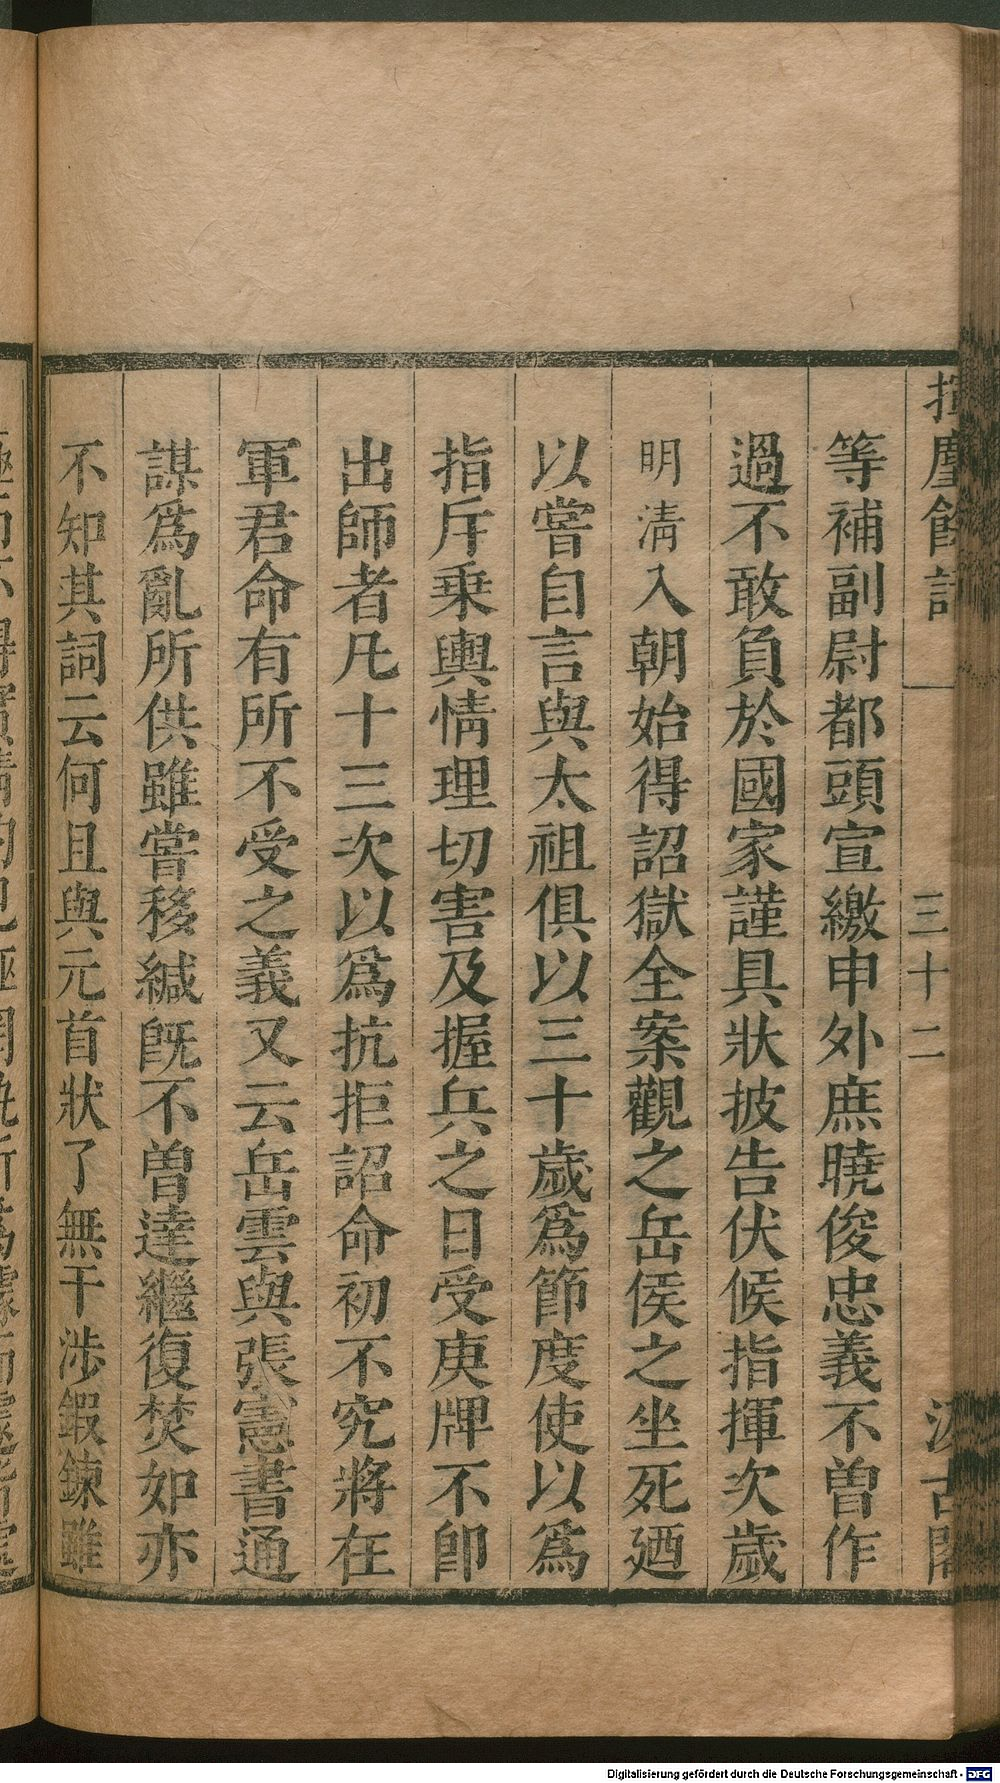 揮麈餘話 三十二 汲古閣
等補副尉都頭宣繳申外庶曉俊忠義不曾作
過不敢負於國家謹具狀披告伏候指揮次歲
明淸入朝始得詔獄全案觀之岳侯之坐死廼
以嘗自言與太祖俱以三十歲爲節度使以爲
指斥乗輿情理切害及握兵之日受庚牌不卽
出師者凡十三次以爲抗拒詔命初不究將在
軍君命有所不受之義又云岳雲與張憲書通
謀爲亂所供雖嘗移緘旣不曾達繼復焚如亦
不知其詞云何且與元首狀了無干涉鍜鍊雖
Digitalisierung gefördert durch die Deutsche Forschungsgemeinschaft - DFG